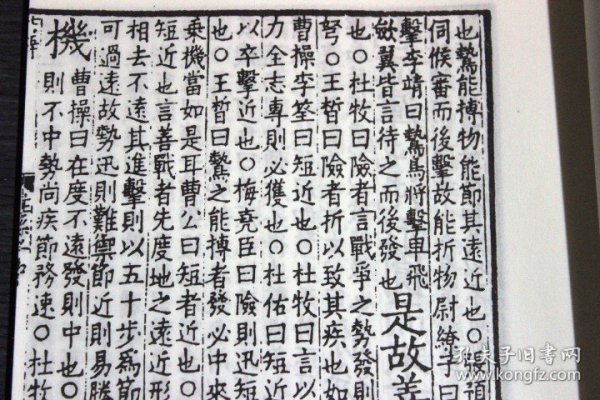 也鷙能搏物能節其遠近也〇
伺候審而後擊故能折物尉繚子曰
擊李靖曰鷙鳥將擊卑飛
斂翼皆言待之而後發也 是故善
也〇杜牧曰險者言戰爭之勢發則
弩〇王晳曰險者折以致其疾也如
曹操李筌曰短近也〇杜牧曰言以
力全志專則必獲也〇杜佑曰短近
以卒擊近也〇梅堯臣曰險則迅短
也〇王晳曰鷙之能搏者發必中來
乘機當如是耳曹公曰短者近也〇
短近也言善戰者先度地之遠近形
相去不遠其進擊則以五十步為節
可過遠故勢迅則難禦節近則易勝
機 曹操曰在度不遠發則中也〇
則不中勢尚疾節務速〇杜牧
孔夫子旧书网
www.kongfz.com